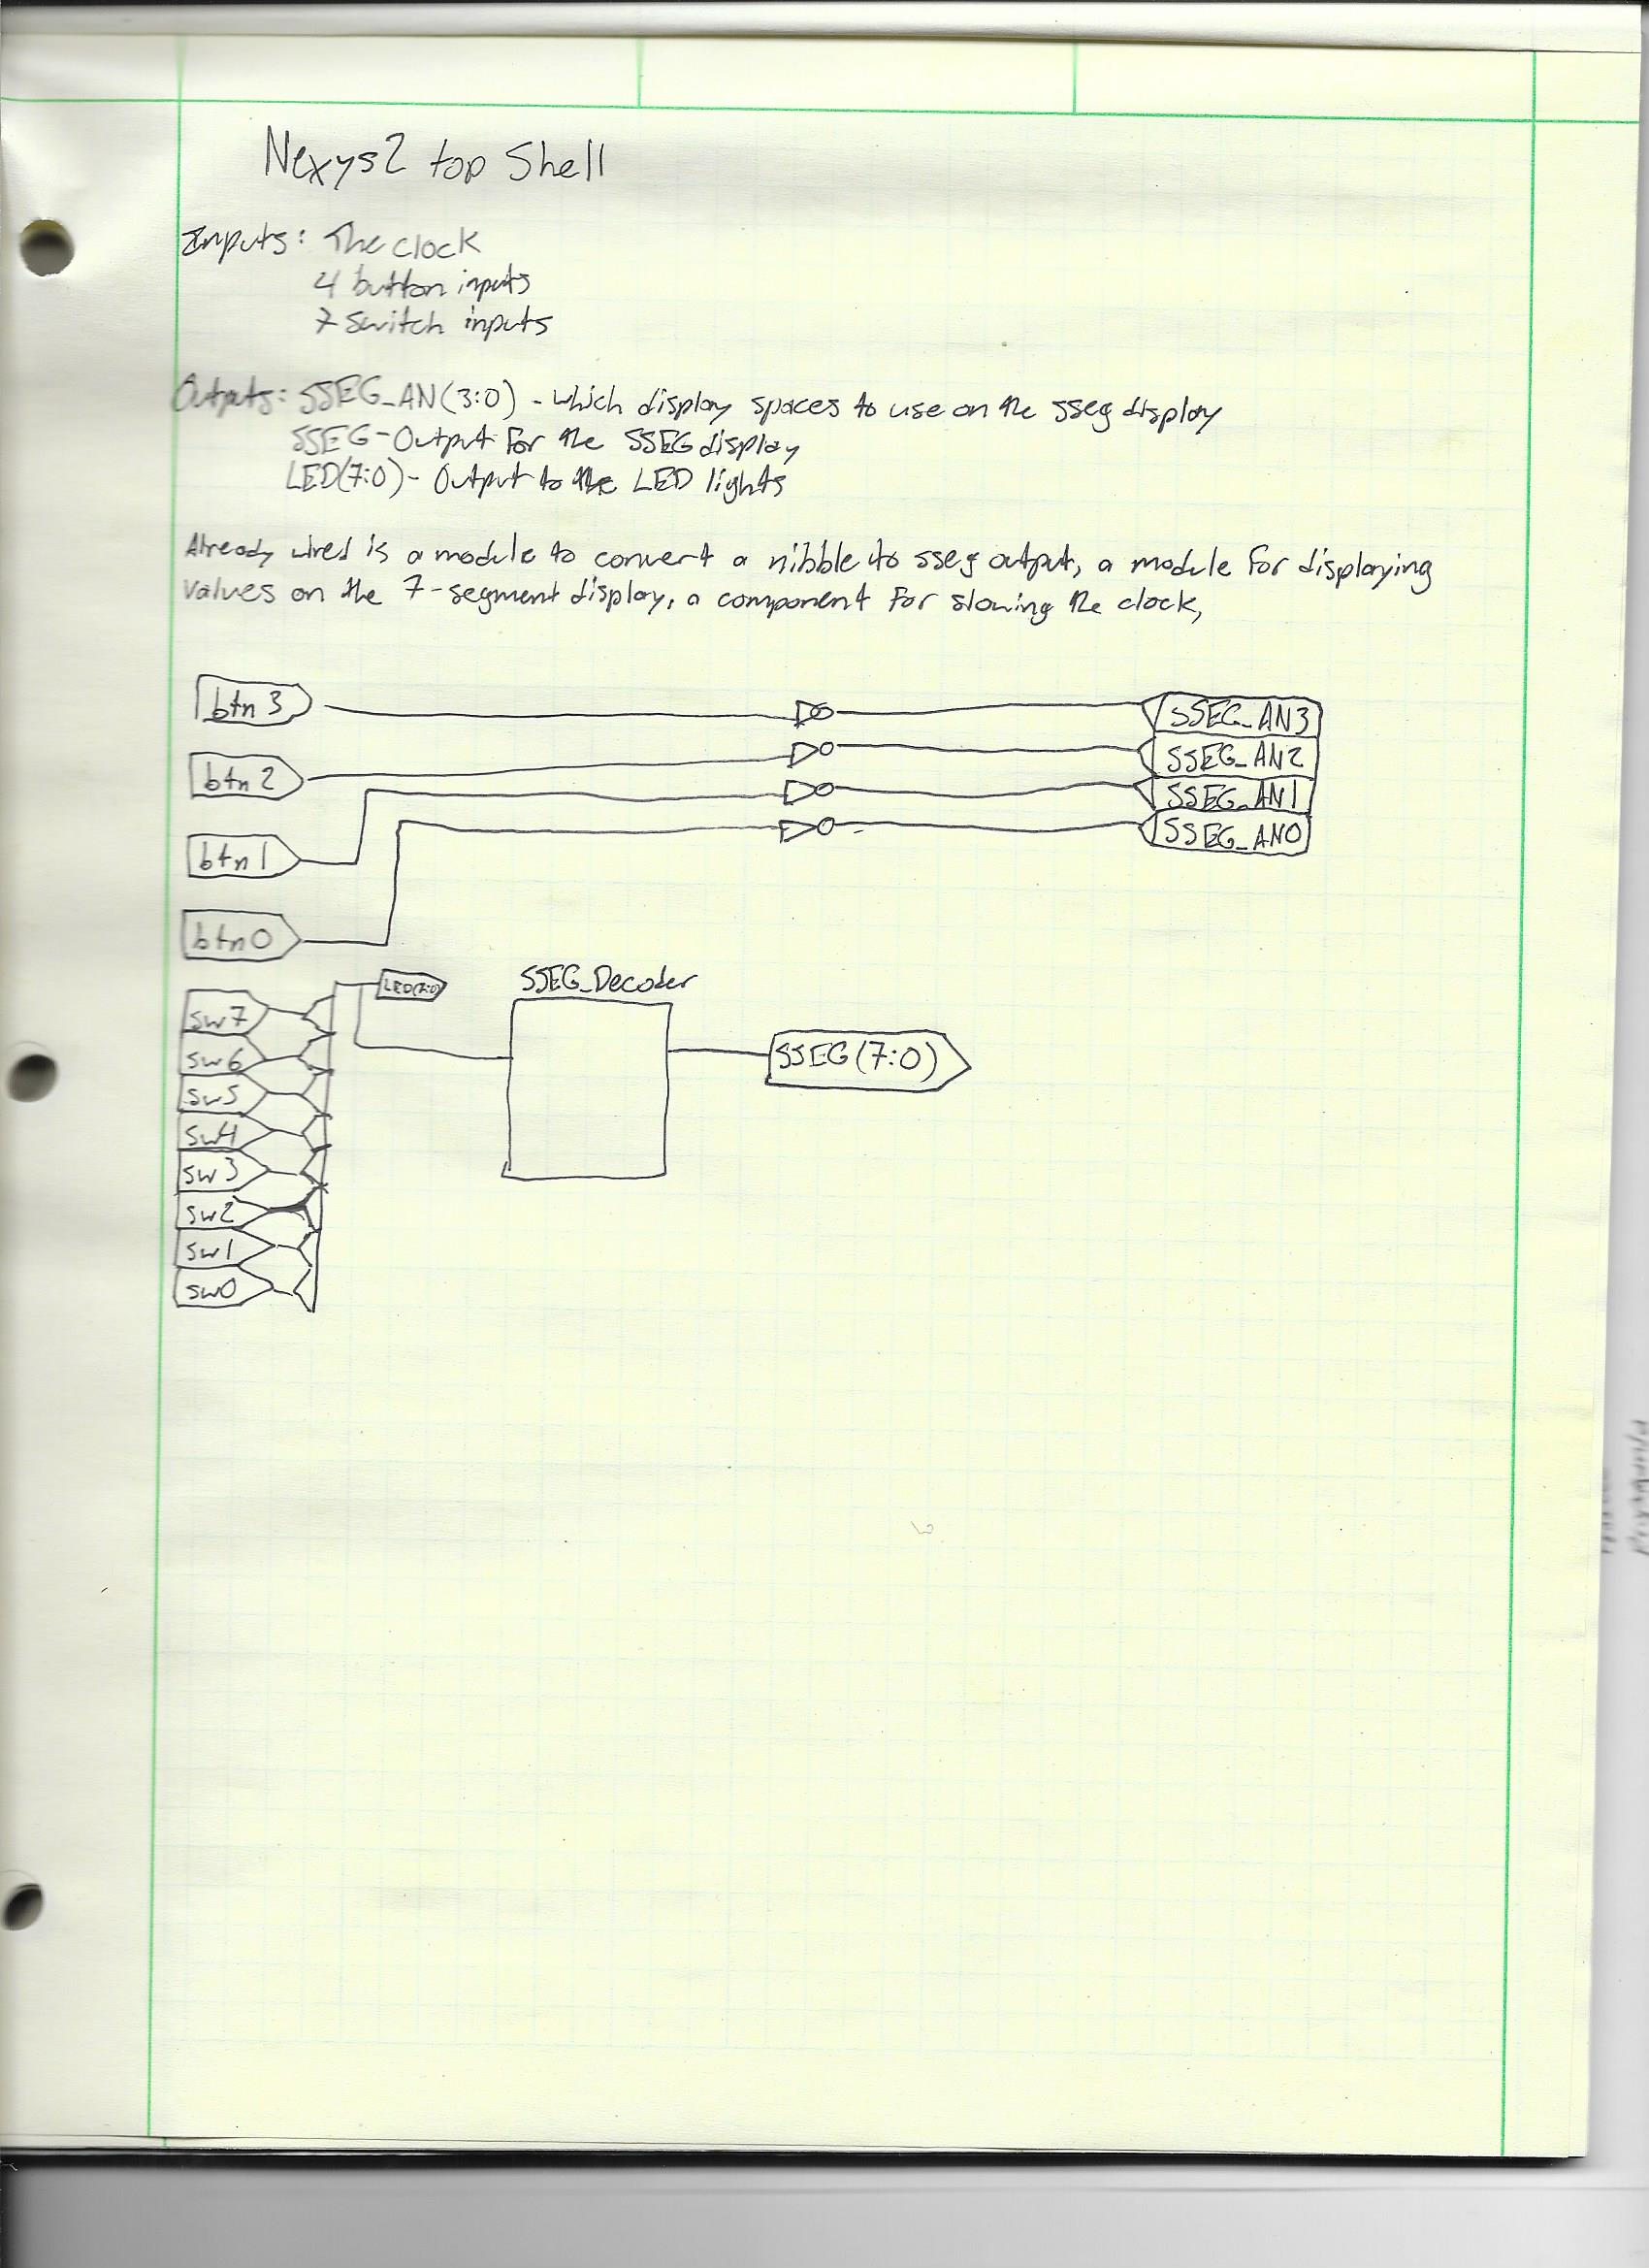 Nexys2 top Shell
Inputs: The clock
4 button inputs
7 switch inputs
Outputs: SSEG_AN(3:0) - which display spaces to use on the sseg display
SSEG - Output for the SSEG display
LED(7:0) - Output to the LED lights
Already wired is a module to convert a nibble to sseg output, a module for displaying
values on the 7-segment display, a component for slowing the clock,
btn3
SSEG_AN3
btn2
SSEG_AN2
SSEG_AN1
btn1
SSEG_AN0
btn0
LED(7:0)
SSEG_Decoder
sw7
SSEG(7:0)
sw6
sw5
sw4
sw3
sw2
sw1
sw0